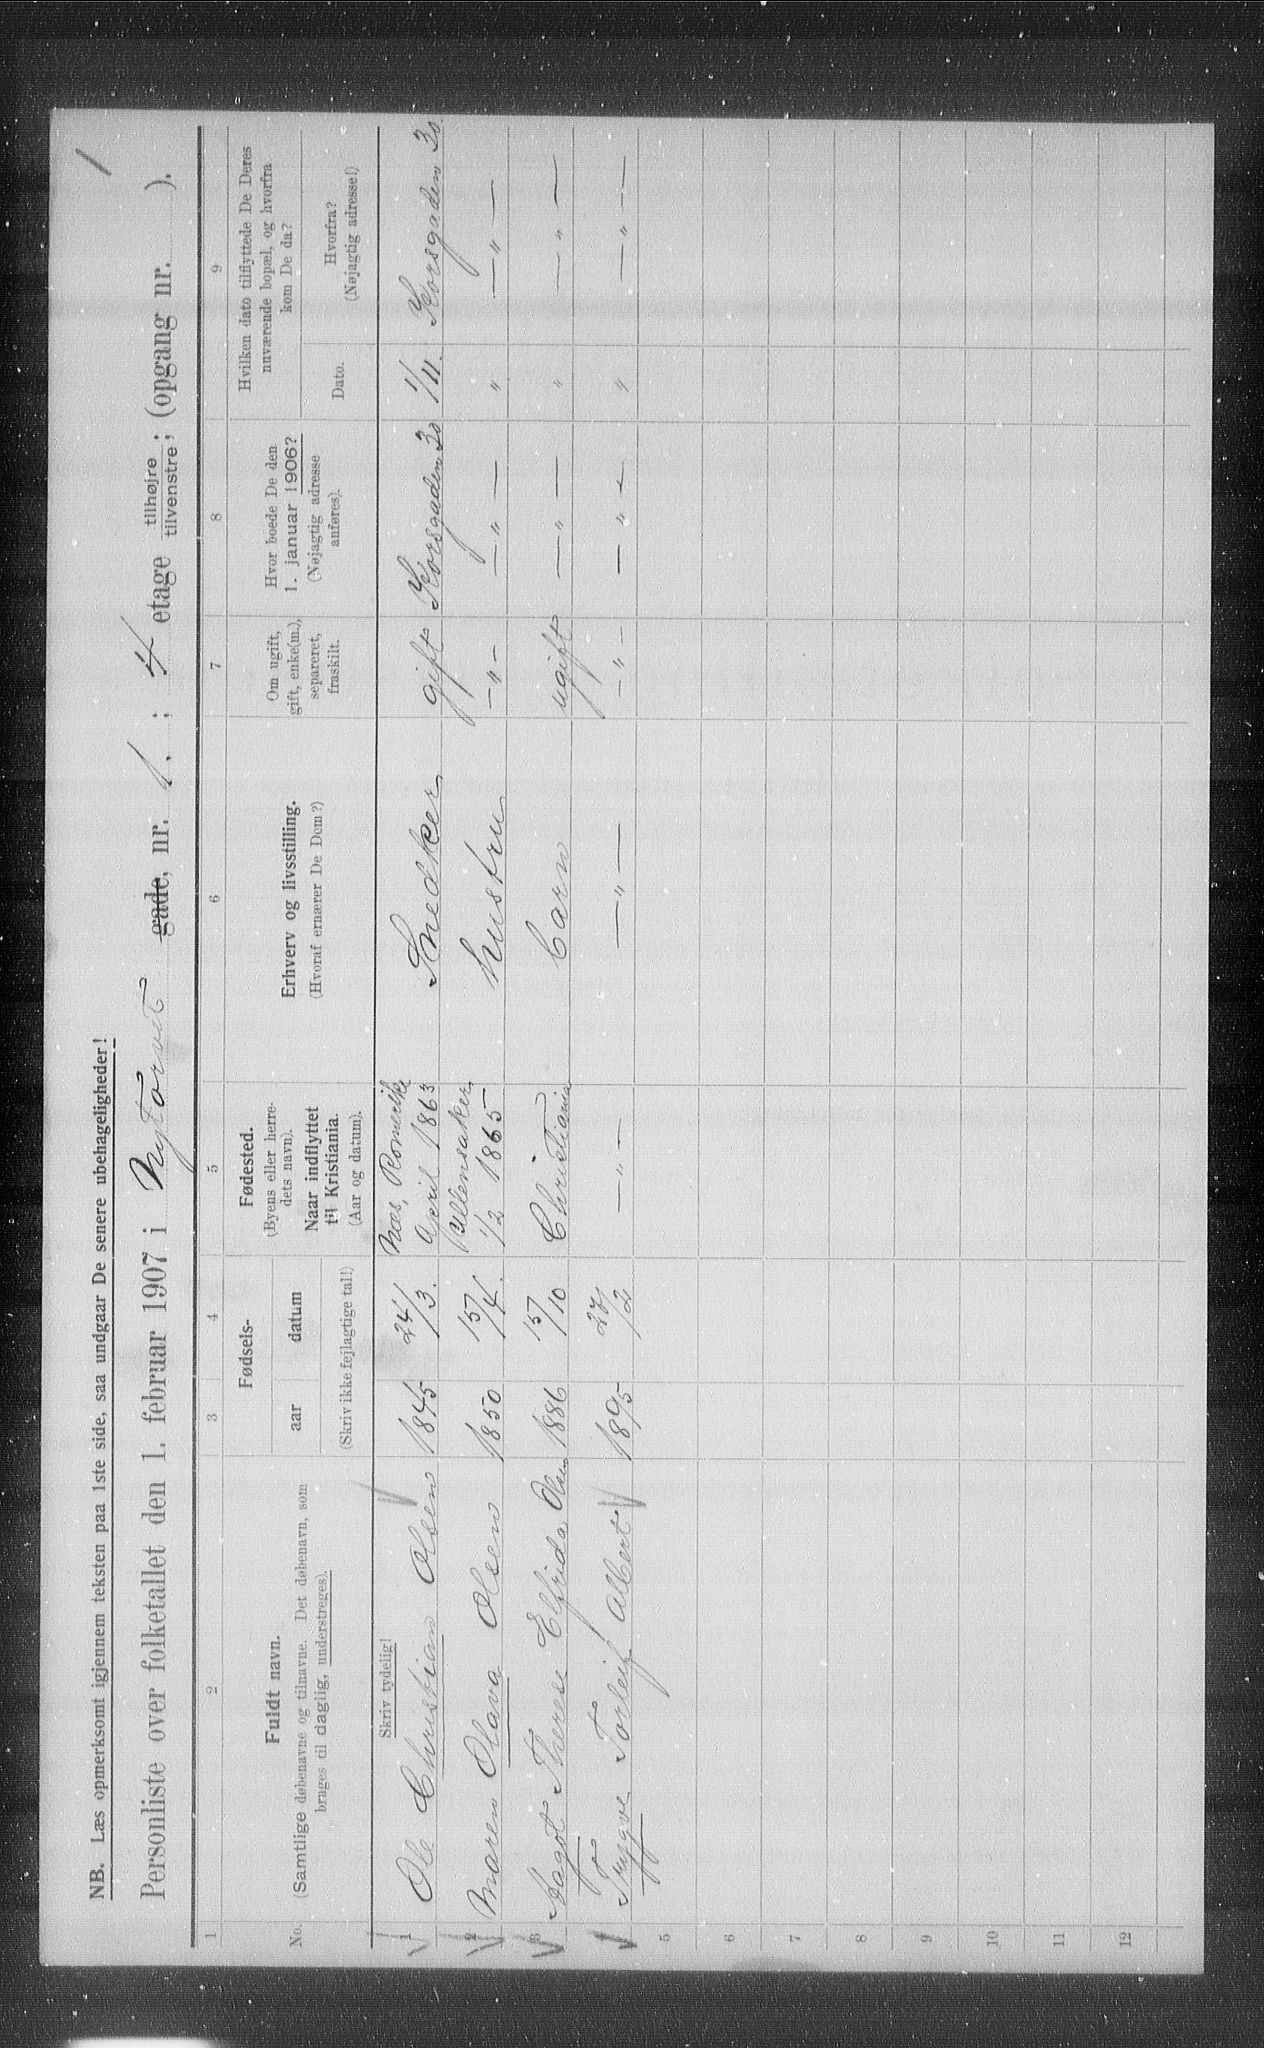 NB. Læs opmerksomt igjennem teksten paa 1ste side, saa undgaar De senere ubehageligheder!
Personliste over folketallet den 1. februar 1907 i Nytorvet gade, nr. 1. ; 4 etage tilhøjre tilvenstre; (opgang nr. ).
1 2 3 4 5 6 7 8 9
No.
Fuldt navn.
(Samtlige døbenavne og tilnavne. Det døbenavn, som
brages til daglig, understreges).
Fødsels-
aar datum
(Skriv ikke fejlagtige tal!)
Fødested.
(Byens eller herre-
dets navn).
Naar indflyttet
til Kristiania.
(Aar og datum).
Erhverv og livsstilling.
(Hvoraf ernærer De Dem?)
Om ugift,
gift, enke(m.),
separeret,
fraskilt.
Hvor boede De den
1. januar 1906?
(Nøjagtig adresse
anføres).
Hvilken dato tilflyttede De Deres
nuværende bopæl, og hvorfra
kom De da?
Dato.
Hvorfra?
(Nøjagtig adresse!)
Skriv tydelig!
1 Ole Christian Olsen 1845 24/3. Næs, Romerike April 1863 Snedker gift Korsgaden 30 1/11. Korsgaden 30.
2 Maren Olava Olsen 1850 15/4. Ullensaker 1/2 1865 hustru —"— —"— " —"—
3 Dagot Therese Elfrida Olsen 1886 15/10 Christiania barn ugift —"— " —"—
Trygve Torleif Albert 1895 27/2 —"— —"— —"— —"— " —"—
5
6
7
8
9
10
11
12